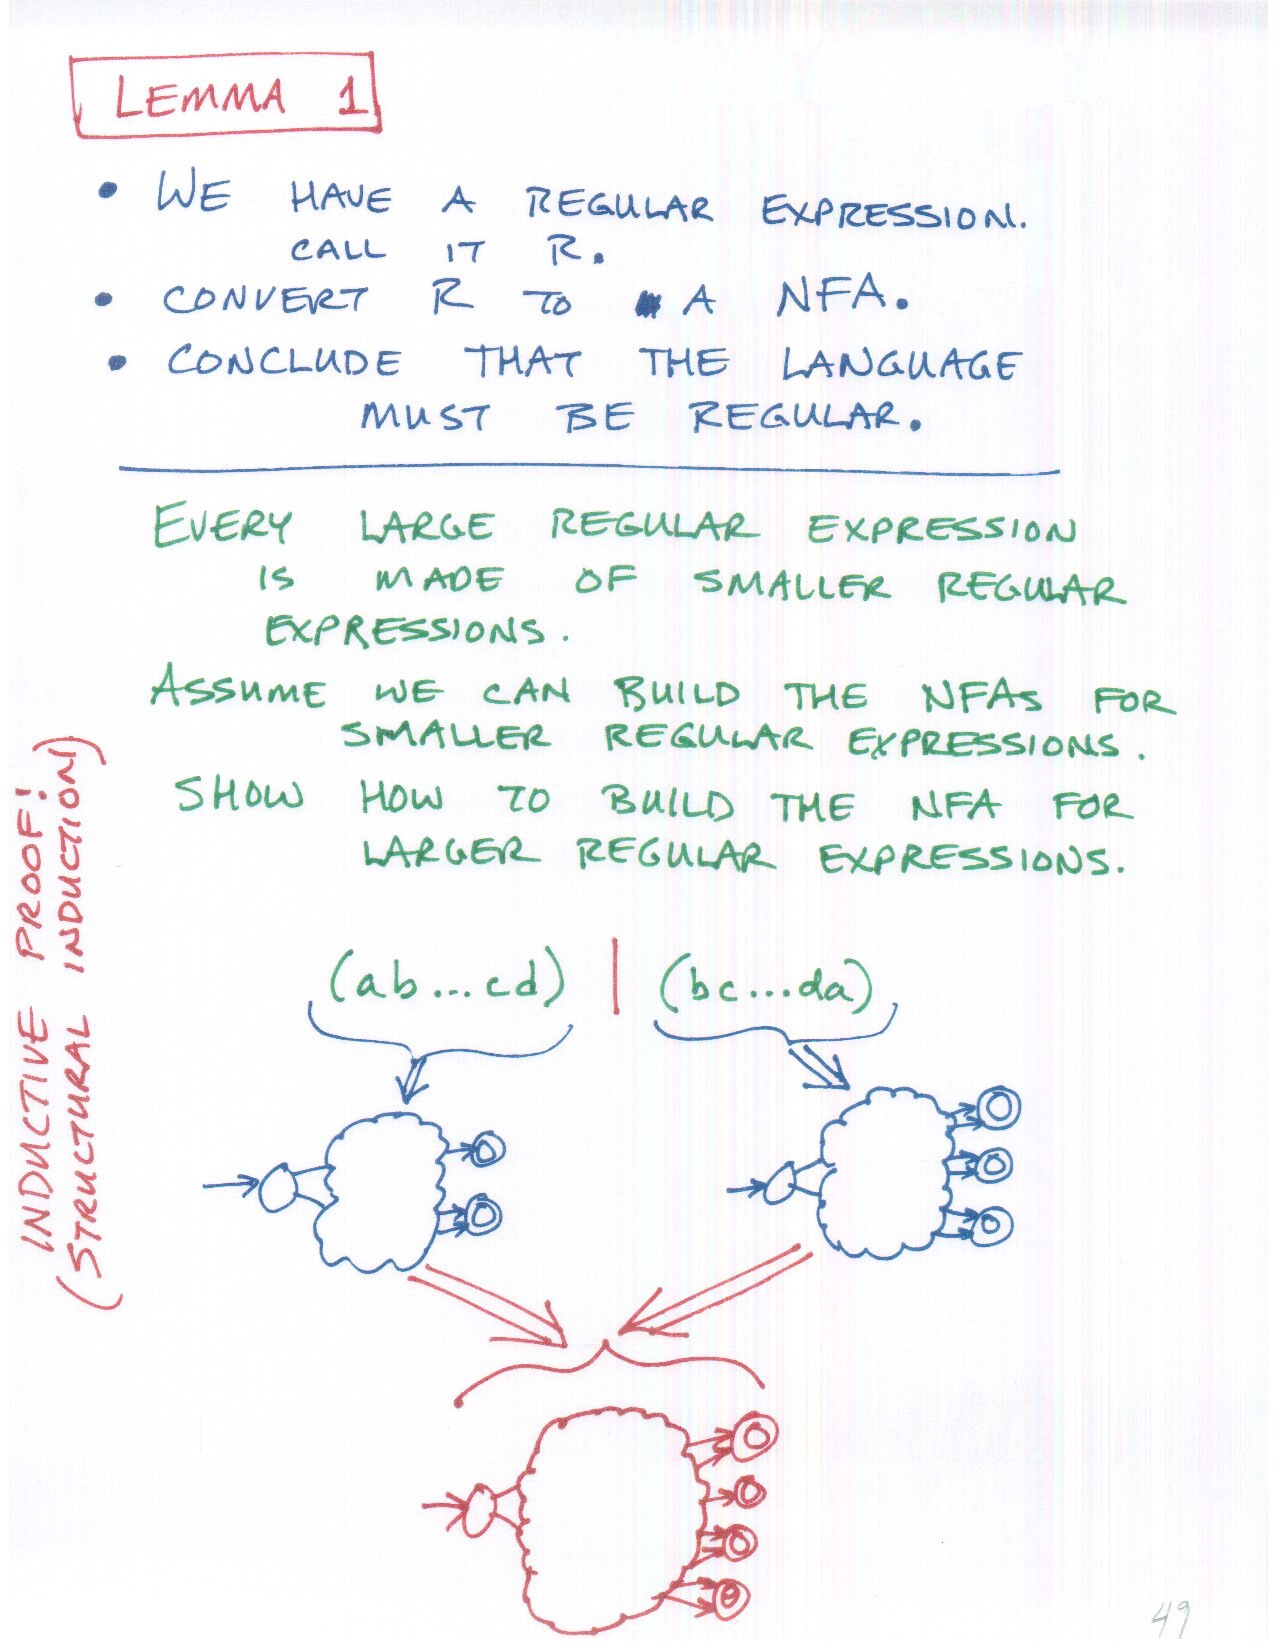 LEMMA 1
• WE HAVE A REGULAR EXPRESSION.
CALL IT R.
• CONVERT R TO A NFA.
• CONCLUDE THAT THE LANGUAGE
MUST BE REGULAR.
EVERY LARGE REGULAR EXPRESSION
IS MADE OF SMALLER REGULAR
EXPRESSIONS.
ASSUME WE CAN BUILD THE NFAs FOR
SMALLER REGULAR EXPRESSIONS.
SHOW HOW TO BUILD THE NFA FOR
LARGER REGULAR EXPRESSIONS.
INDUCTIVE PROOF!
(STRUCTURAL INDUCTION)
(ab...cd) | (bc...da)
49